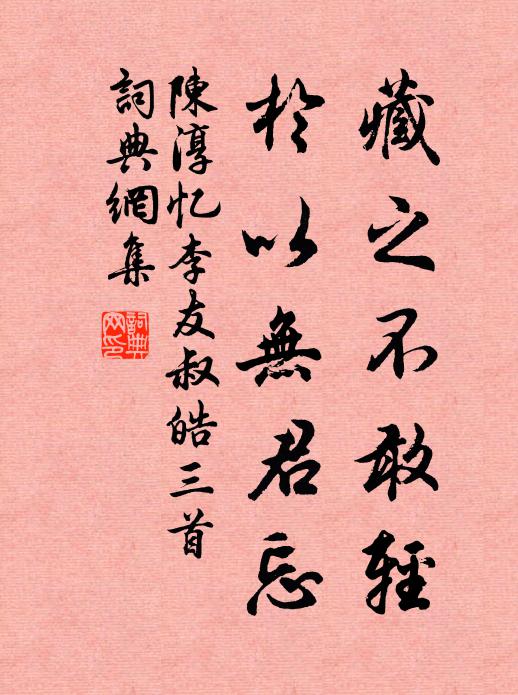 藏之不敢輕
於以無君忘
陳淳忆李友叔皓三首
詞典網集
詞典网印